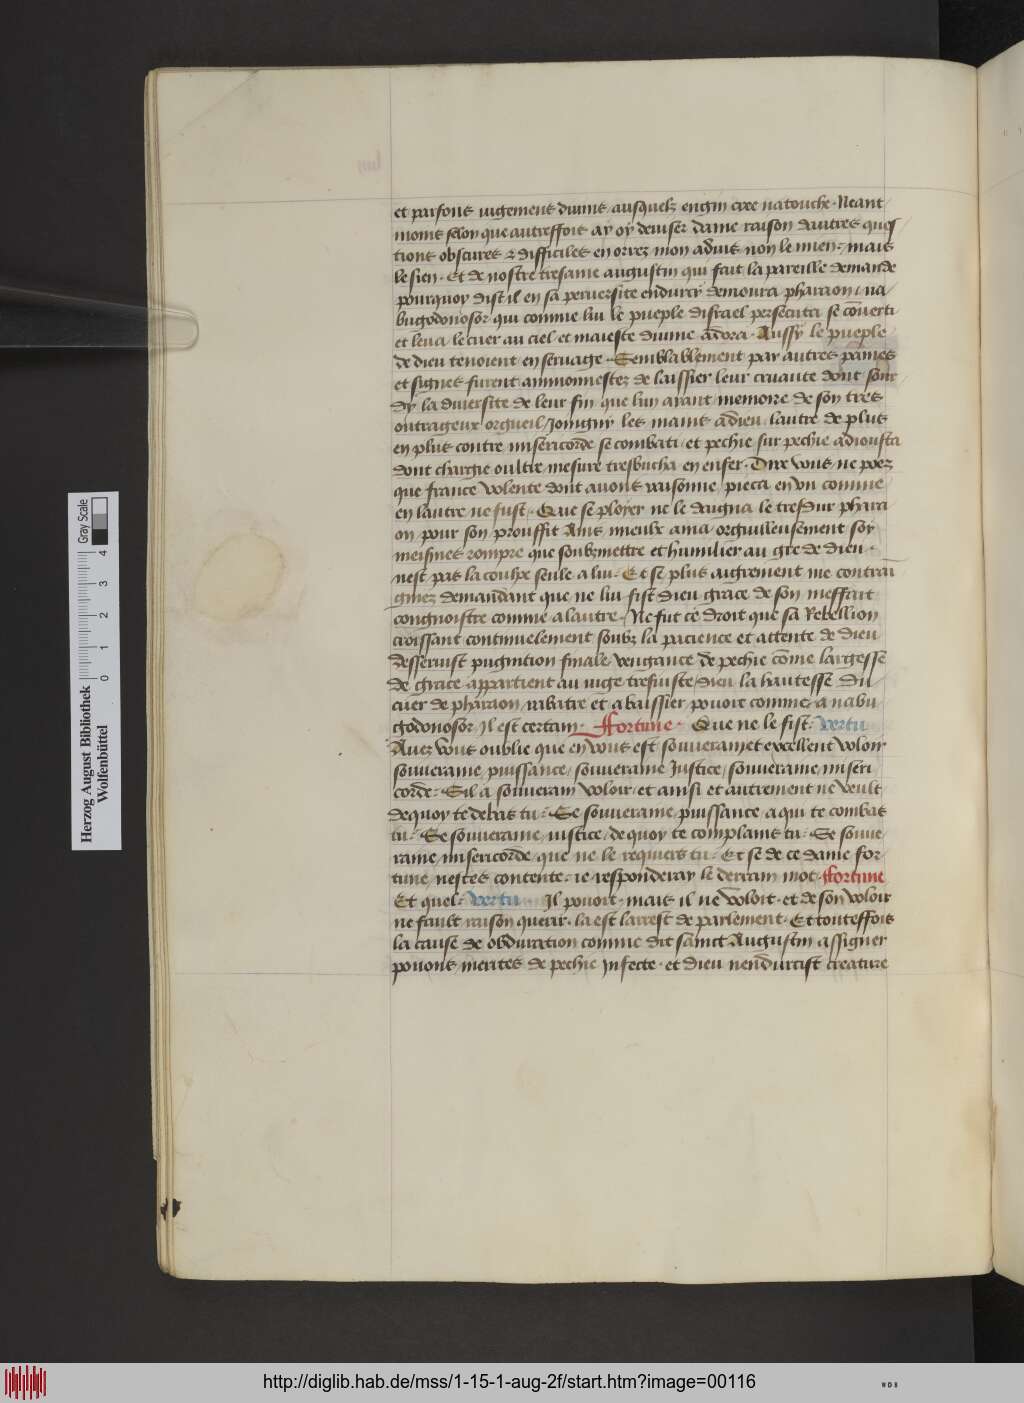 et parfons iugemens diuins ausquelz engin cree natouche. Neant
moins selon que autreffois ay oy deuiser dame raison dautres ques
tions obscures & difficiles en orrez mon aduis non le mien. mais
le sien. et de nostre tresame augustin qui fait la pareille demande
pourquoy dist il en sa peruersite endurcy demoura pharaon. na
bugodonosor qui comme lui le pueple disrael persecuta se conuerti
et leua le cuer au ciel et maieste diuine adora. Aussy le pueple
de dieu tenoient en seruage. Semblablement par autres paines
et signes furent ammonnestez de laissier leur cruaute dont sour
dy la diuersite de leur fin que lun ayant memoire de son tres
oultrageux orgueil Joingny les mains a dieu. lautre de plus
en plus contre misericorde se combati. et pechie sur pechie adiousta
dont chargie oultre mesure tresbucha en enfer. Dire vous ne poez
que france volente dont auons raisonne pieca en vn comme
en lautre ne fust. Que se ployer ne le daigna le tresdur phara
on pour son prouffit Ains mieulx ama orguilleusement soy
meismes rompre que soubzmettre et humilier au gre de dieu.
nest pas la coulpe seule a lui. Et se plus aigrement me contrai
gniez demandant que ne lui fist dieu grace de son meffait
congnoistre comme a lautre. Ne fut ce droit que sa Rebellion
croissant continuelement soubz la pacience et attente de dieu
desseruist pugnition finale. vengance de pechie come largesse
de grace appartient au iuge tresiuste, dieu la haultesse du
cuer de pharaon rabatre et abaissier pouoit comme a nabu
godonosor. Jl est certain. Ffortune. Que ne le fist: vertu
Auez vous oublie que en vous est souuerain et excellent voloir
souueraine puissance, souueraine Justice, souueraine miseri
corde. Sil a souuerain voloir et ainsi et autrement ne veult
de quoy te debas tu: Se souueraine puissance a qui te combas
tu: Se souueraine iustice, de quoy te complains tu: Se souue
raine misericorde que ne le requiers tu: Et se de ce dame for
tune nestes contente. ie responderay le derrain mot. ffortune
Et quel: vertu. Jl pouoit. mais il ne voloit. et de son voloir
ne fault raison querir. la est larrest de parlement. Et touteffois
la cause de obduration comme dit sainct Augustin assigner
pouons merites de pechie Jnfecte. et dieu nendurcist creature
Herzog August Bibliothek
Wolfenbüttel
0 1 2 3 4
Gray Scale
http://diglib.hab.de/mss/1-15-1-aug-2f/start.htm?image=00116
WDB